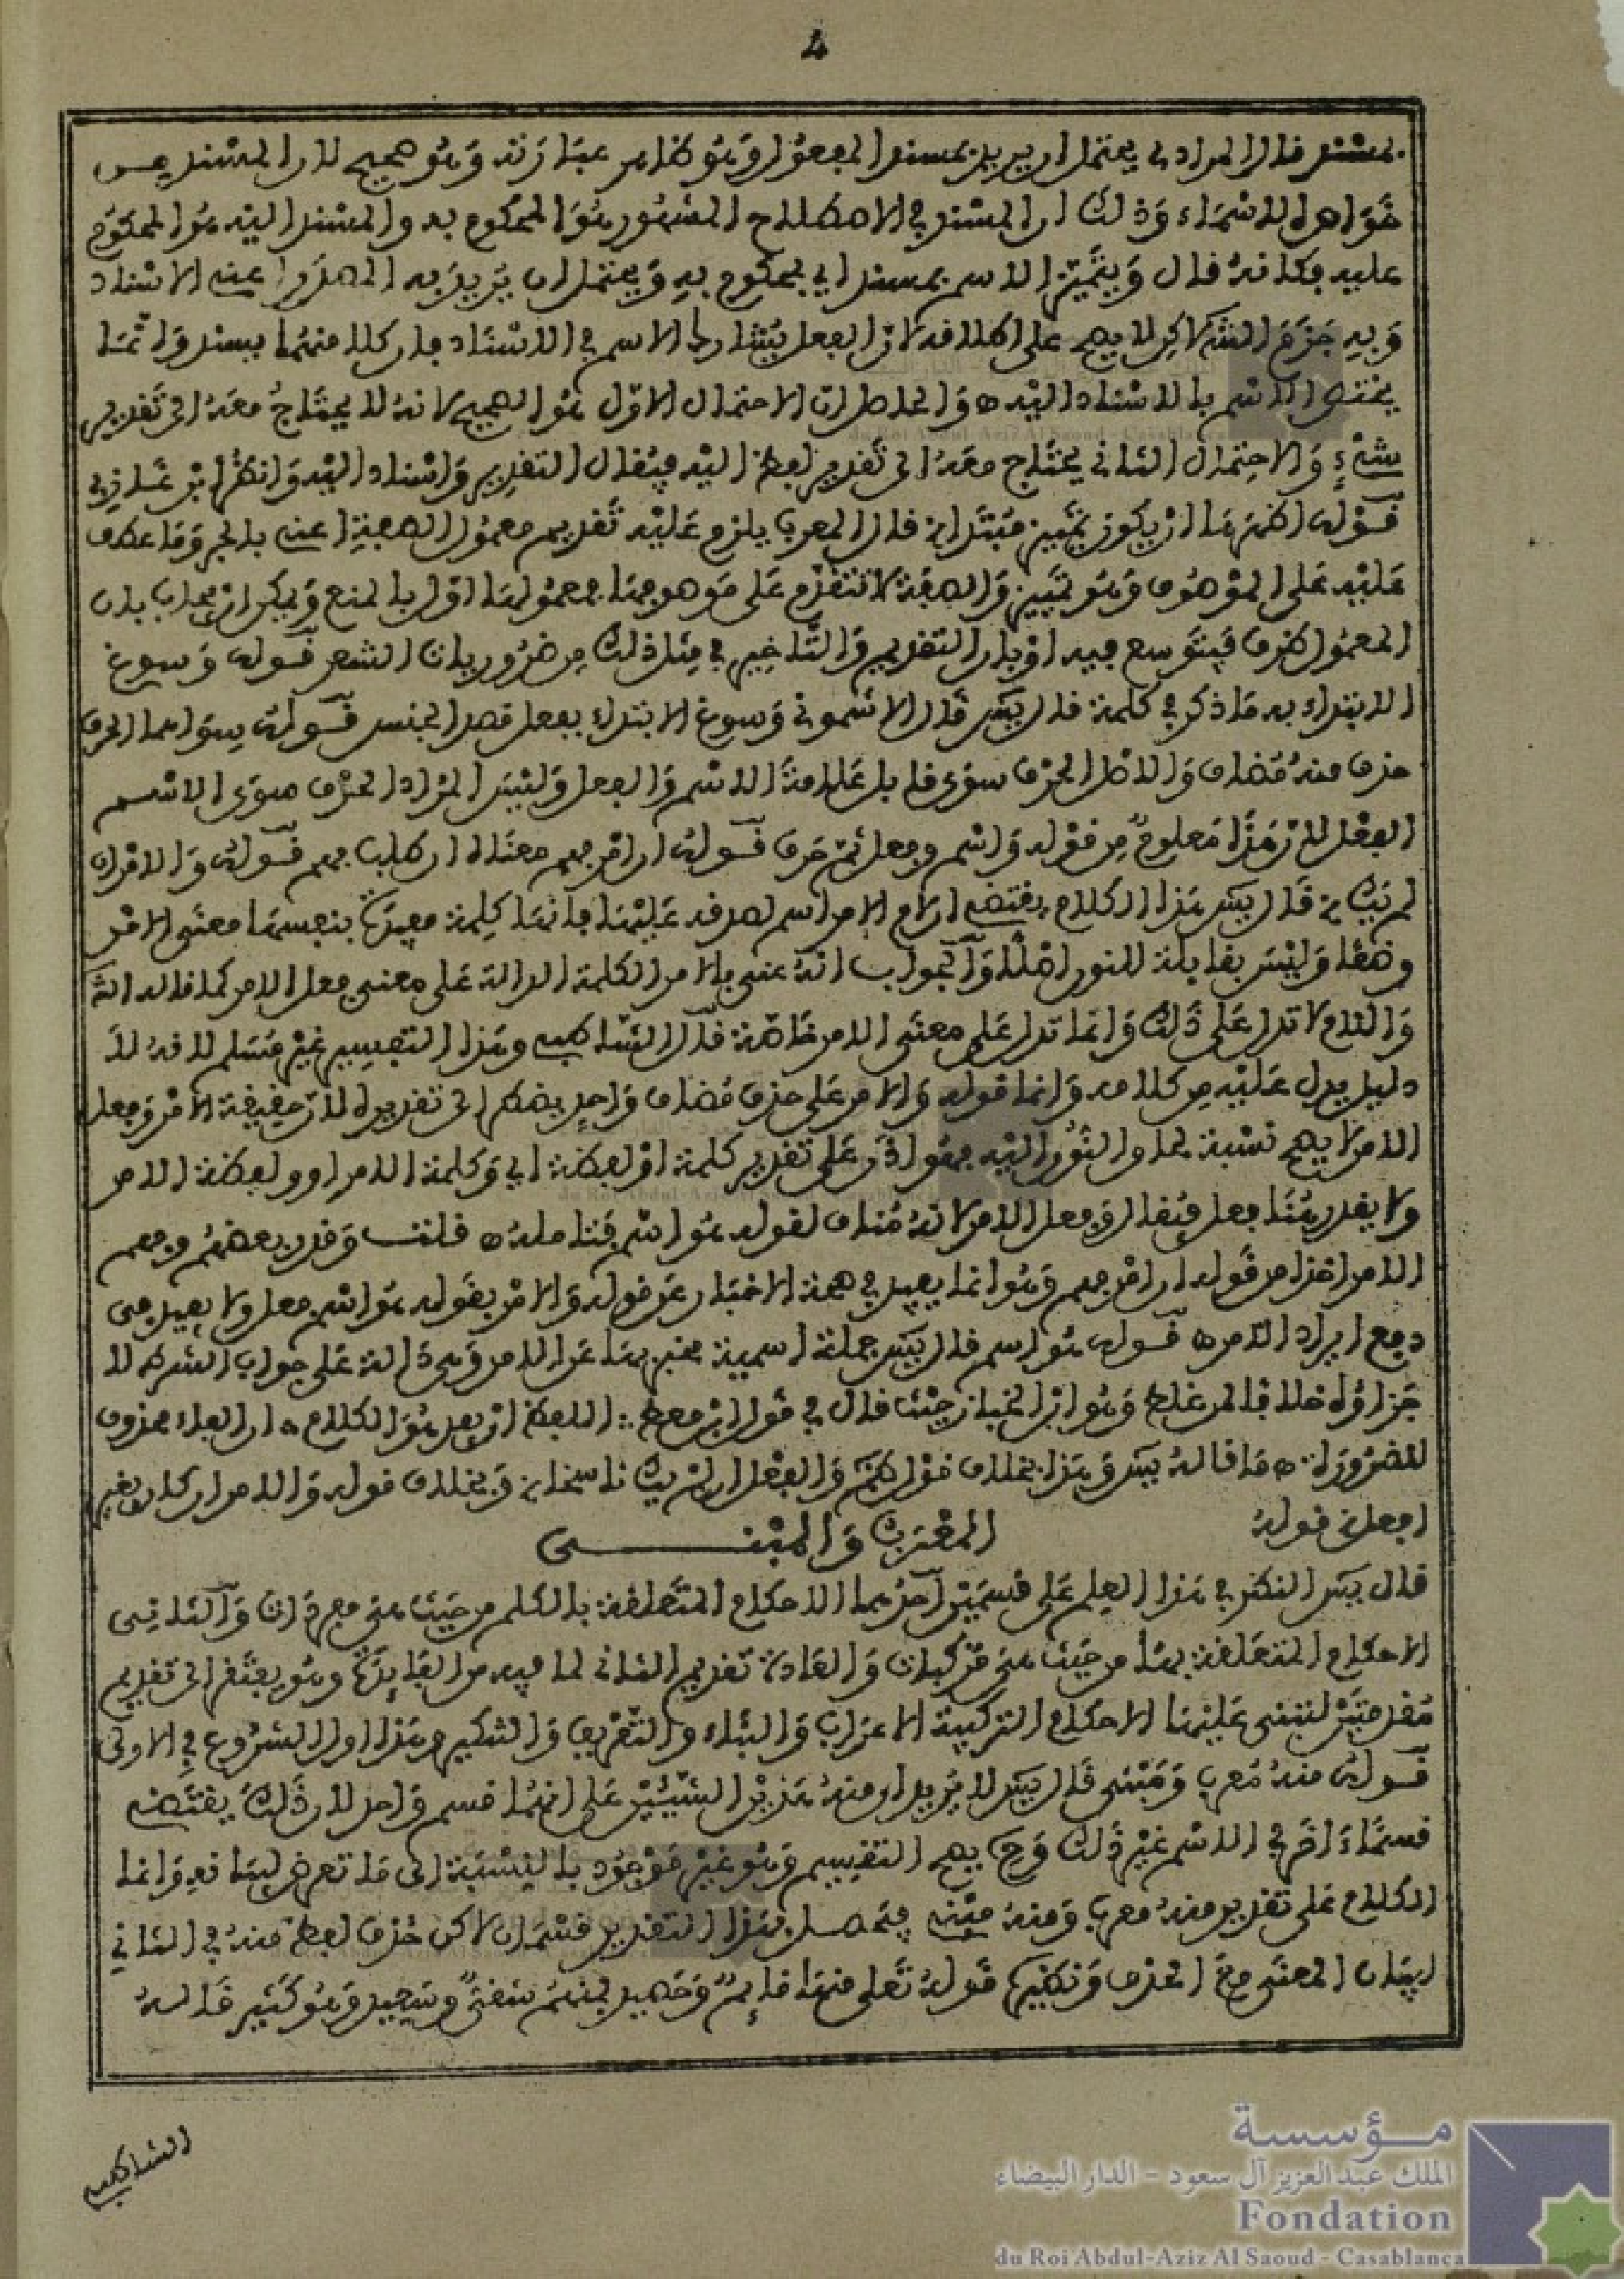 4
بمسند قال المرادي يحتمل ان يريد بمسند المفعول وهو ظاهر عبارته وهو صحيح لان المسند من
خواص الاسماء وذلك ان المسند في الاصطلاح المشهور هو المحكوم به والمسند اليه هو المحكوم
عليه فكانه قال ويتميز الاسم بمسند اي بمحكوم به ويحتمل ان يريد به المصدر اعني الاسناد
وبه جزم الشارح لكن لا يصح على اطلاقه لان الفعل يشارك الاسم في الاسناد فان كلا منهما يسند وانما
يختص الاسم بالاسناد اليه ه والحاصل ان الاحتمال الاول هو الصحيح لانه لا يحتاج معه الى تقدير
شيء والاحتمال الثاني يحتاج معه الى تقدير لفظ اليه فيقال التقدير واسناد اليه وانظر ابن غازي
قوله اظهرها ان يكون تمييز مبتدا قال المعرب يلزم عليه تقديم معمول الصفة اعني بالجر وما عطف
عليه على الموصوف وهو تمييز والصفة لا تتقدم على موصوفها فمعمولها اولى بالمنع ويمكن ان يجاب بان
المعمول ظرف فيتوسع فيه او بان التقديم والتاخير في مثل ذلك من ضروريات الشعر قوله وسوغ
الابتداء به ما ذكر في كلمة قال يس قال الاشموني وسوغ الابتداء بفعل قصد الجنس قوله سواهما الحرف
حذف منه مضاف والاصل الحرف سوى قابل علامة الاسم والفعل وليس المراد الحرف سوى الاسم
الفعل لان هذا معلوم من قوله واسم وفعل ثم حرف قوله ان امر فهم معناه ان طلب فهم قوله والامر ان
لم يك الخ قال يس هذا الكلام يقتضي ان لام الامر اسم لصدقه عليها فانها كلمة مفيدة بنفسها معنى الامر
وضعا وليس بقابلة للنون اصلا والجواب انه عنى بالامر الكلمة الدالة على معنى فعل الامر كما قاله الشا
واللام لا تدل على ذلك وانما تدل على معنى الامر خاصة قال الشاطبي وهذا التفسير غير مسلم لانه لا
دليل يدل عليه من كلامه وانما قوله والامر على حذف مضاف واحد يضطر الى تقديره لان حقيقة الامر وفعل
الامر لا يصح نسبة محل والنون اليه فهو اذن على تقدير كلمة او لفظة اي وكلمة الامر او ولفظة الامر
ولا يقدر هنا فعل فيقال وفعل الامر لانه مناف لقوله هو اسم فتامله ه قلت وقدر بعضهم وفهم
الامر اخذا من قوله ان امر فهم وهو انما يفيد في صحة الاخبار عن قوله والامر بقوله هو اسم فعل ولا يفيد في
دفع ايراد اللام ه قوله هو اسم قال يس جملة اسمية مخبر بها عن الامر وهي دالة على جواب الشرط لا
جزاؤه خلافا لمن غلط وهو ابن الخباز حيث قال في قول ابن معط اللفظ ان يفد هو الكلام ه ان الفاء محذوف
للضرورة ه ما قاله يس وهذا بخلاف قول ظم والفعل ان لم يك ناسخا الخ وبخلاف قوله والامر ان كان بغير
افعلا في قوله المعرب والمبنـــــــى
قال يس النظر في هذا العلم على قسمين احدهما الاحكام المتعلقة بالكلم من حيث هي مفردات والثاني
الاحكام المتعلقة بها من حيث هي مركبات والعادة تقديم الثاني لما فيه من الفائدة وهو يفتقر الى تقديم
مقدمتين لتبنى عليهما الاحكام التركيبية الاعراب والبناء والتعريف والتنكير وهذا اول الشروع في الاولى
قوله منه معرب ومبنى قال يس لا يريد ان منه هذين الشيئين على انهما قسم واحد لان ذلك يقتضي
قسما ءاخر في الاسم غير ذلك وحـ يصح التقسيم وهو غير موجود بالنسبة الى ما تعرض لبيانه وانما
الكلام على تقدير منه معرب ومنه مبني فيحصل بهذا التقدير قسمان لاكن حذف لفظ منه في الثاني
لبيان المعنى مع الحذف ونظيره قوله تعلى منها قائم وحصيد فمنهم شقي وسعيد وهو كثير قاله
الشاطبي
مؤسسة
الملك عبد العزيز آل سعود - الدار البيضاء
Fondation
du Roi Abdul-Aziz Al Saoud - Casablanca